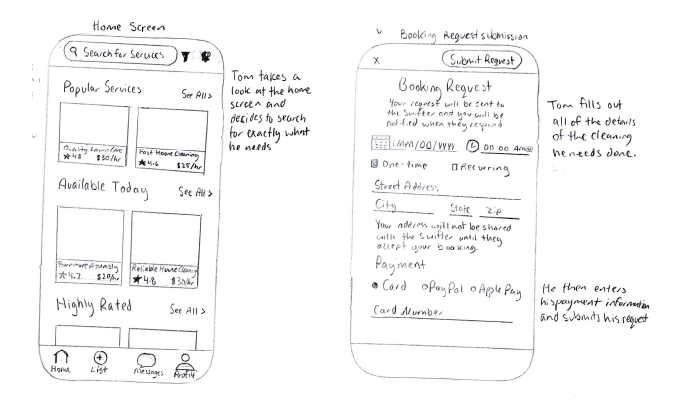 Home Screen
Search for Services
Popular Services
See All >
Quality Lawn Care
★4.8 $30/hr
Fast Home Cleaning
★4.6 $25/hr
Available Today
See All >
Furniture Assembly
★4.7 $20/hr
Reliable Home Cleaning
★4.8 $30/hr
Highly Rated
See All >
Home
List
Messages
Profile
Tom takes a
look at the home
screen and
decides to search
for exactly what
he needs
Booking Request submission
X
Submit Request
Booking Request
Your request will be sent to
the Swifter and you will be
notified when they respond
MM/DD/YYYY
00:00 AM
One-time
Recurring
Street Address
City State Zip
Your address will not be shared
with the Swifter until they
accept your booking.
Payment
Card PayPal Apple Pay
Card Number
Tom fills out
all of the details
of the cleaning
he needs done.
He then enters
his payment information
and submits his request